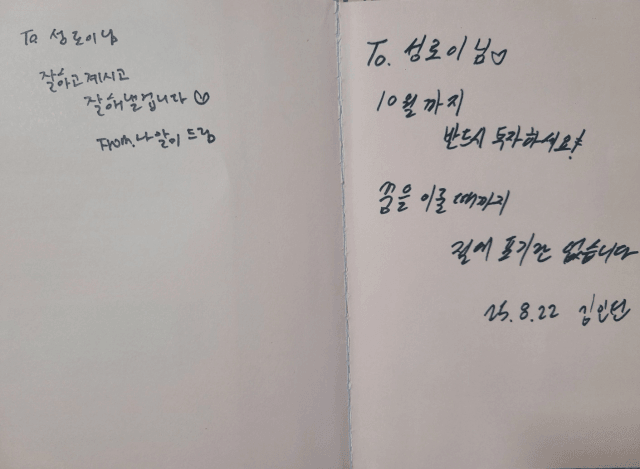 To 성로이님
잘하고 계시고
잘 해낼겁니다 ♡
From. 나알이 드림
To. 성로이님♡
10월까지
반드시 독자하세요!
꿈을 이룰 때까지
절대 포기란 없습니다
25. 8. 22 김인